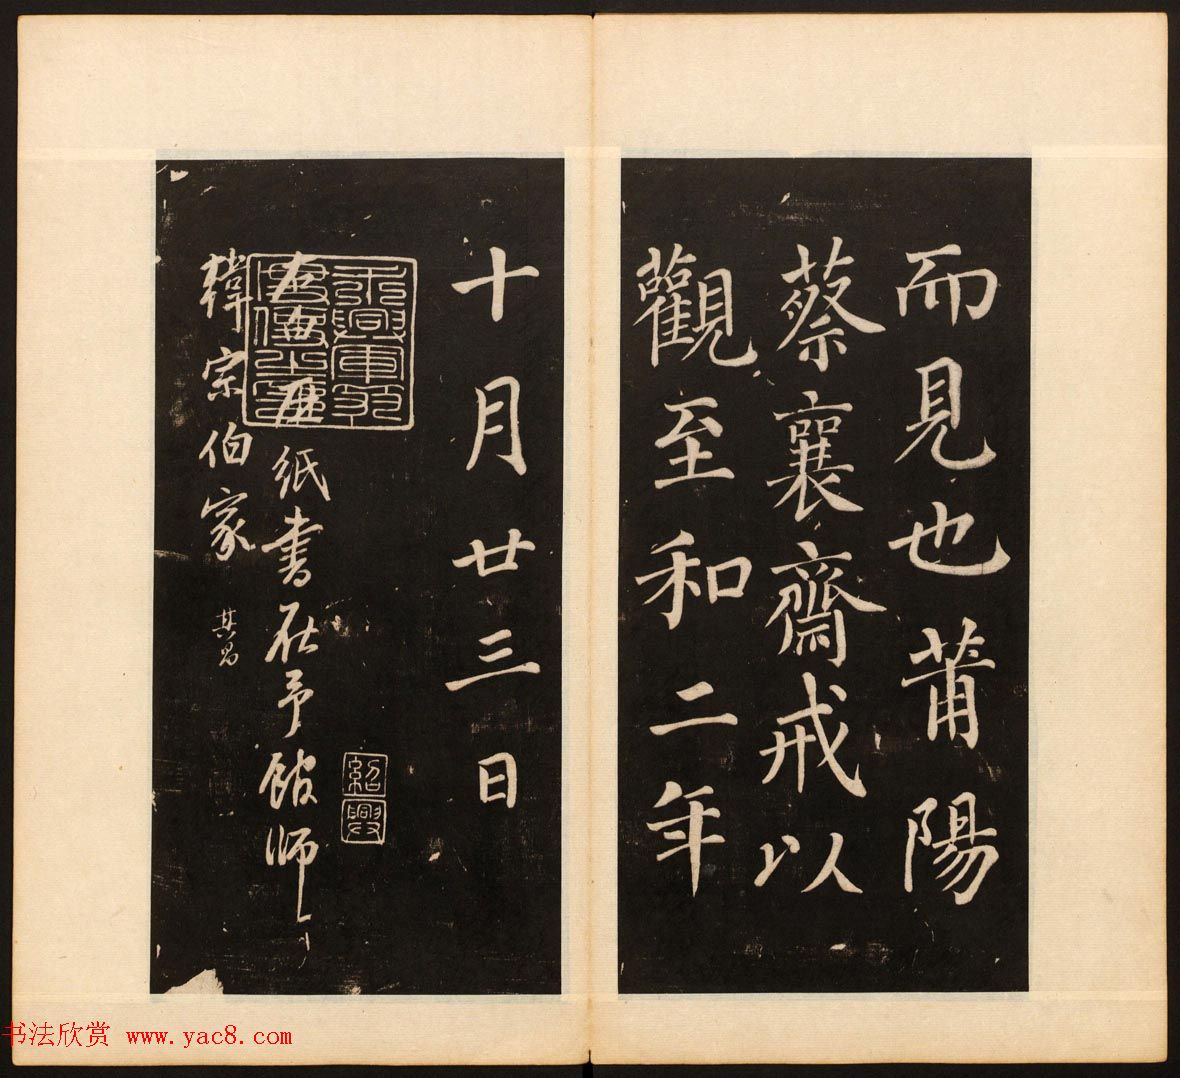 而見也莆陽
蔡襄齋戒以
觀至和二年
十月廿三日
紙書在予館師
韓宗伯家
其昌
紹興
书法欣赏 www.yac8.com